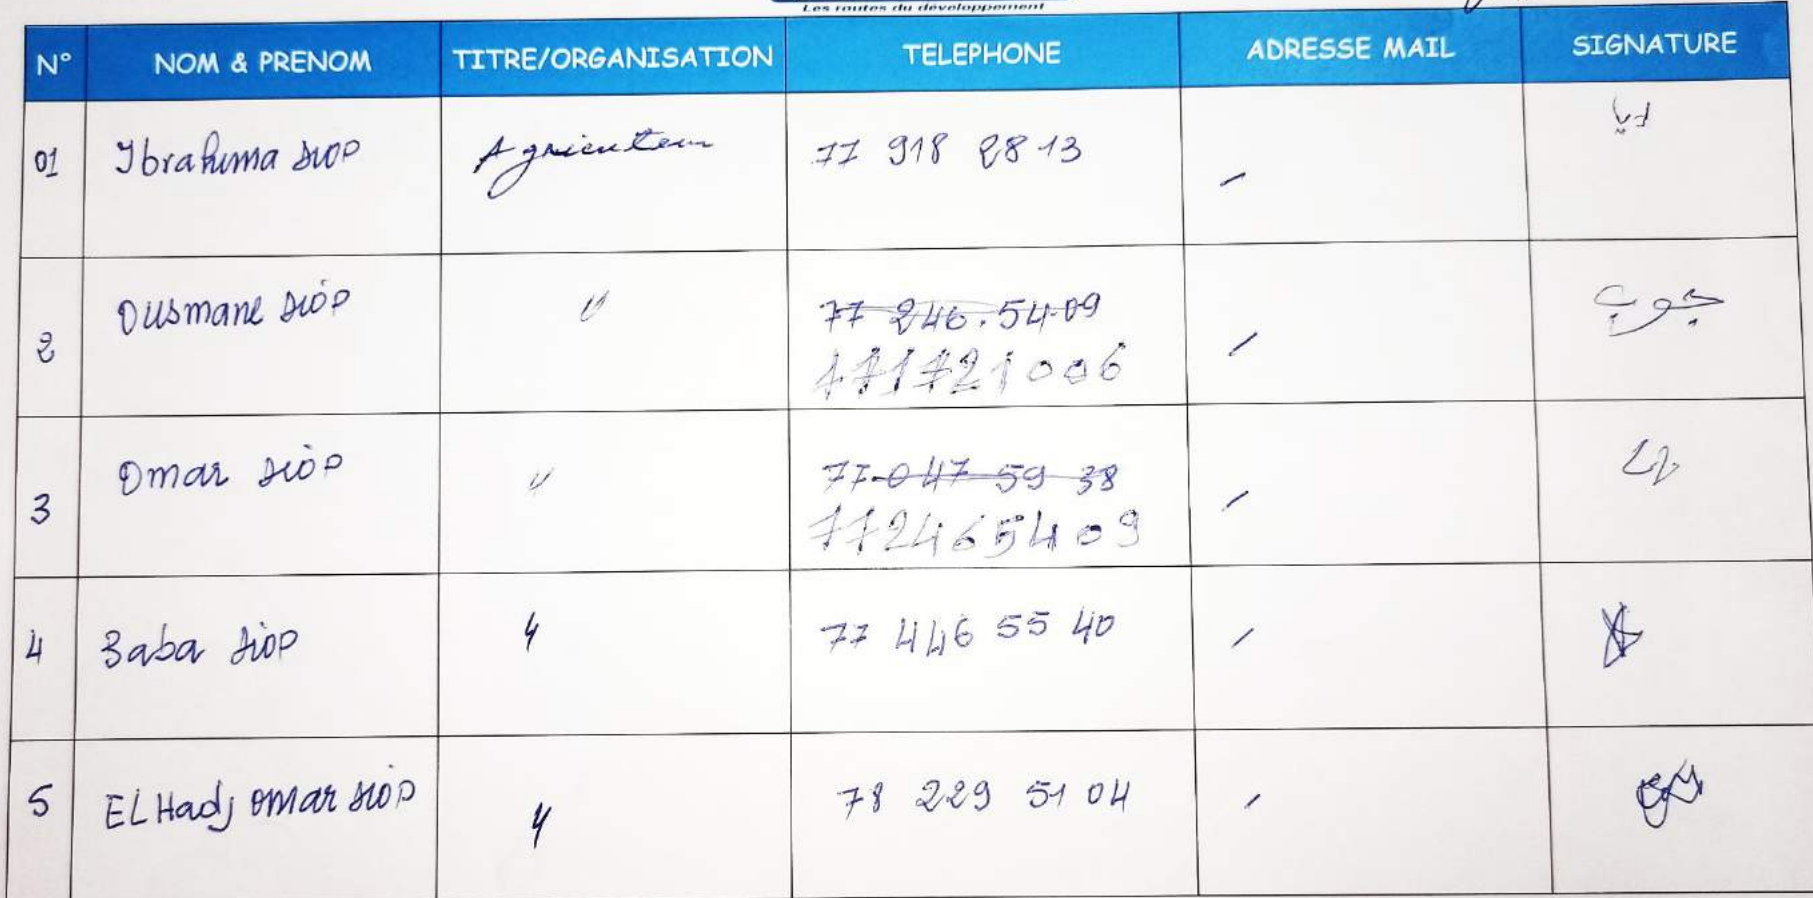 Les routes du développement
N° NOM & PRENOM TITRE/ORGANISATION TELEPHONE ADRESSE MAIL SIGNATURE
01 Ibrahima Diop Agriculteur 77 918 28 13 -
2 Ousmane Diop " 77 246.54.09 جوب
771721006
3 Omar Diop " 77 047 59 38
772465409
4 Baba Diop " 77 446 55 40
5 EL Hadj Omar Diop " 78 229 51 04